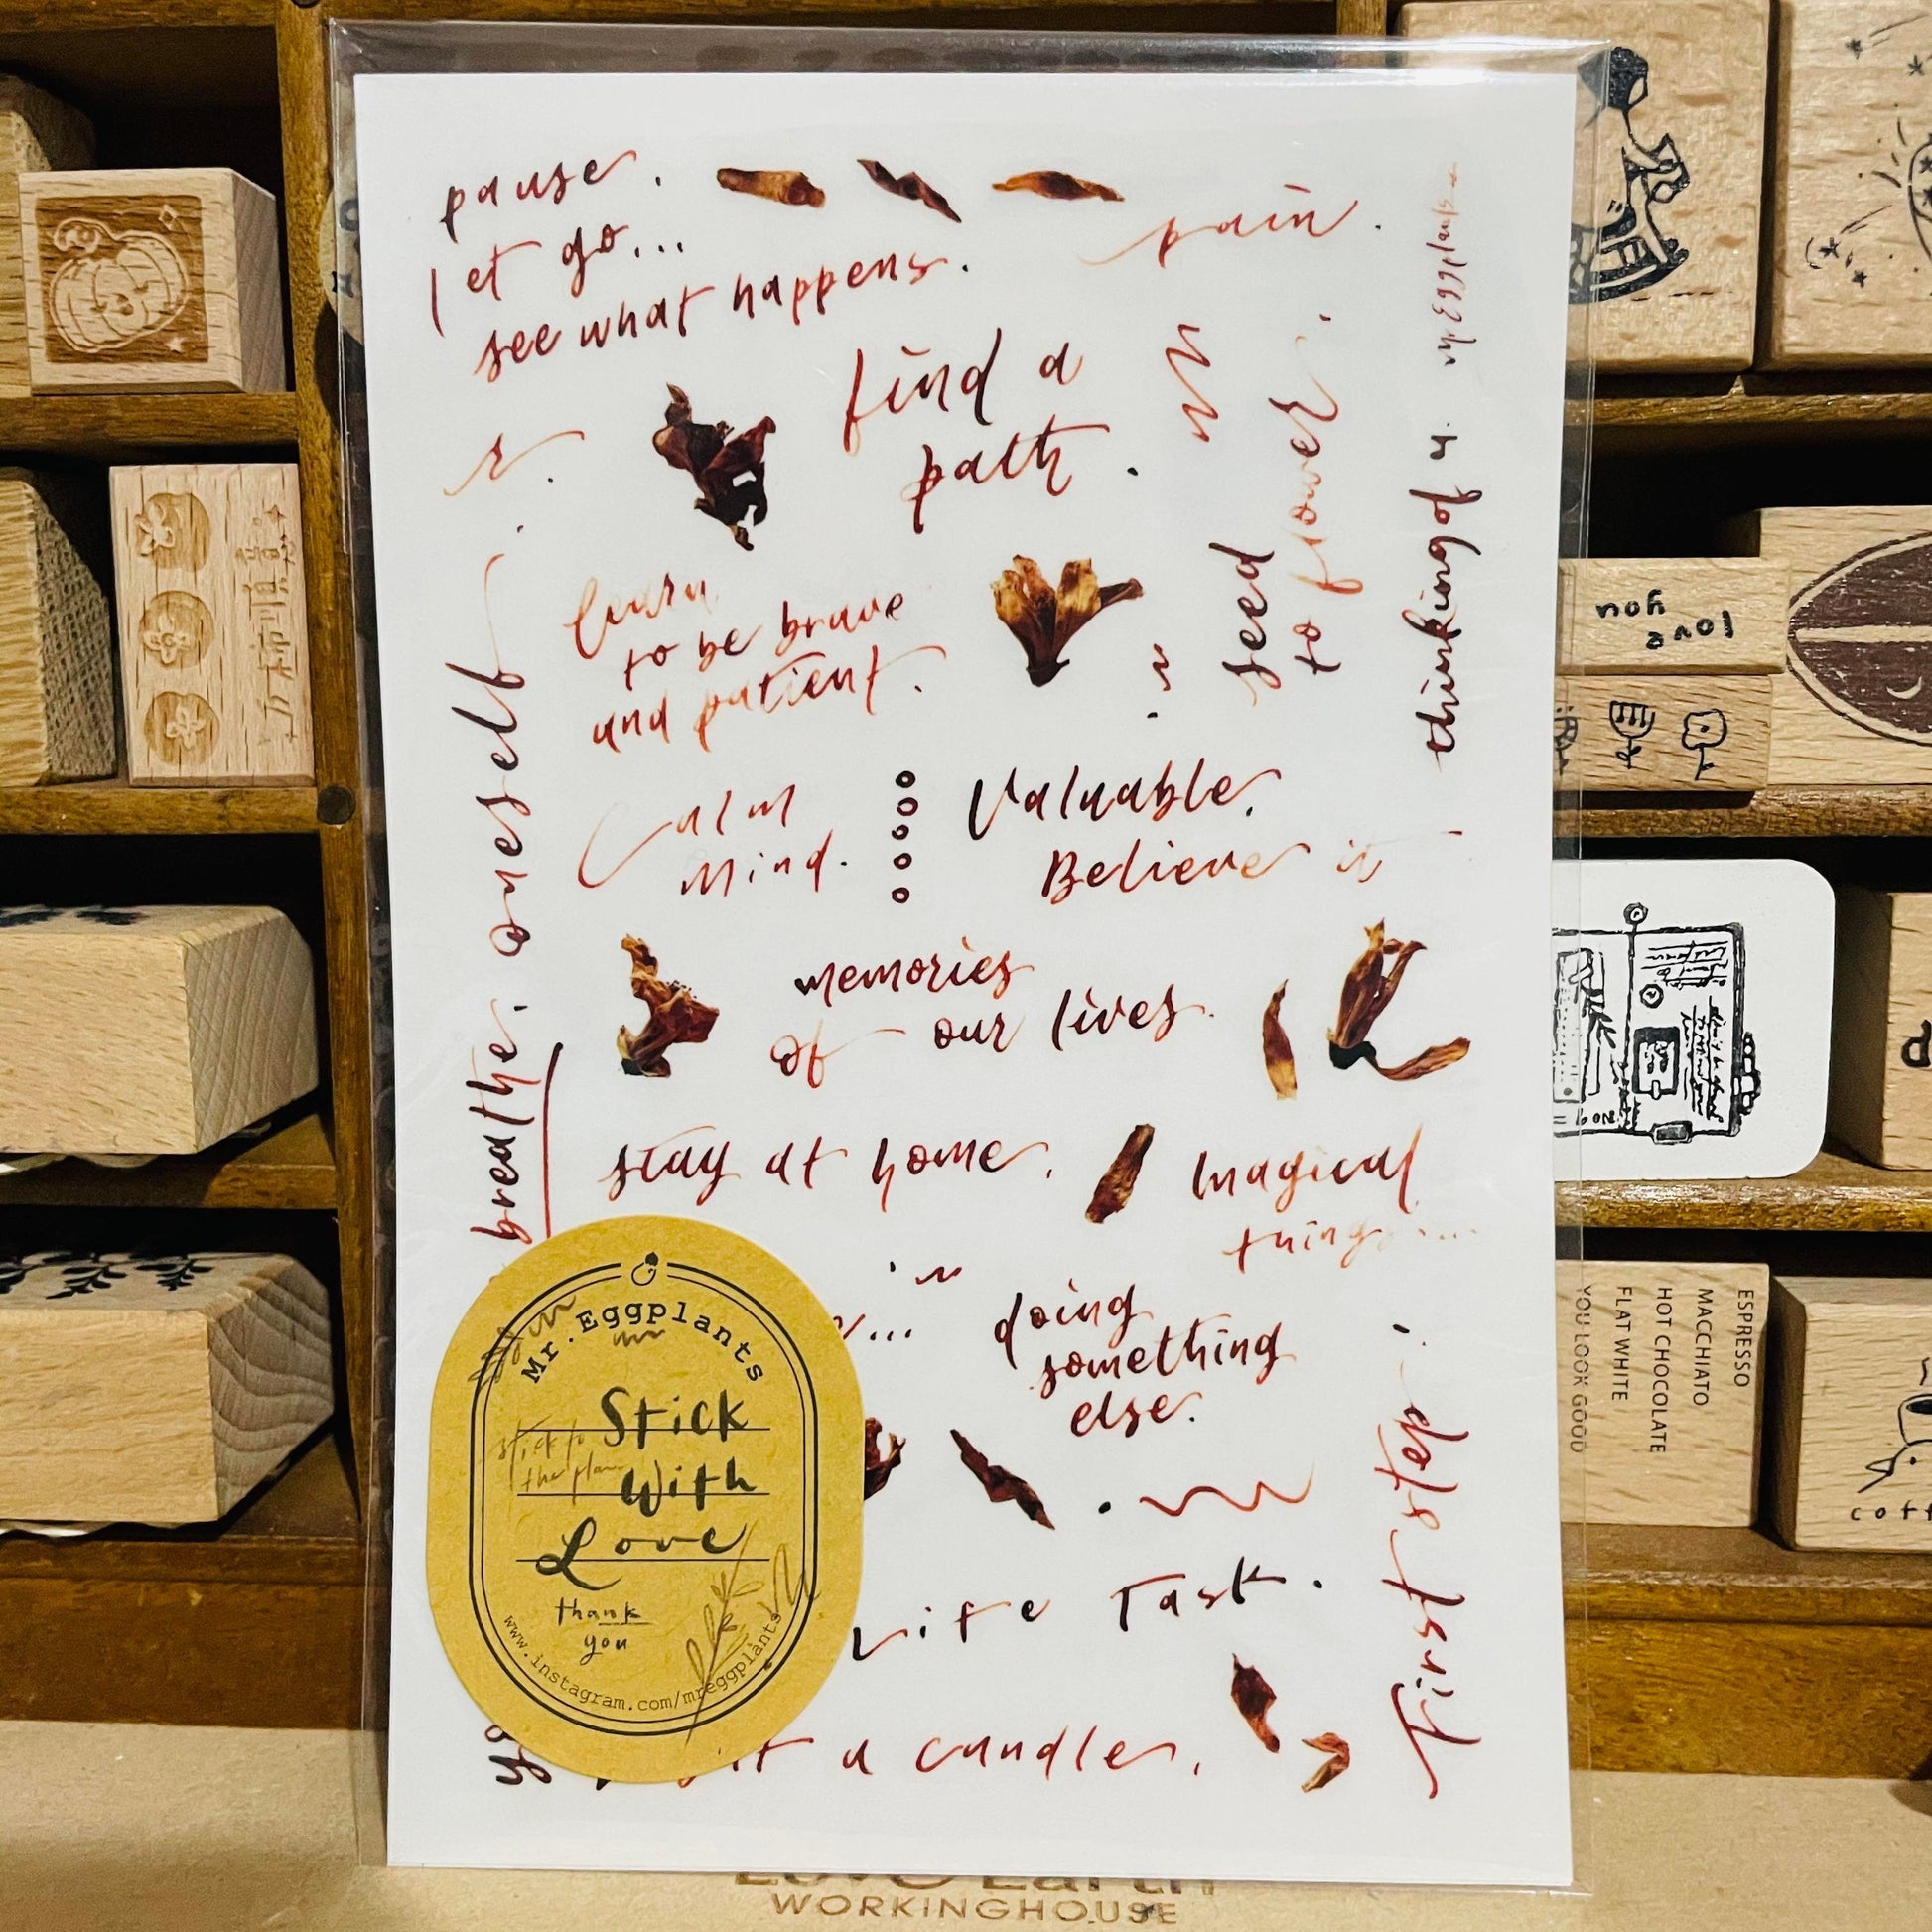 pause.
let go...
see what happens.
pain.
find a
path.
learn
to be brave
and patient.
seed
to flower.
thinking of u.
mr Eggplants
breathe. oneself
Calm
Mind.
Valuable.
Believe it
memories
of our lives.
stay at home.
magical
things....
doing
something
else.
Life Task.
First step.
a candle.
Mr. Eggplants
Stick
With
Love
stick to
the plan
thank
you
www.instagram.com/mreggplants
love
you
ESPRESSO
MACCHIATO
HOT CHOCOLATE
FLAT WHITE
YOU LOOK GOOD
Love Earth
WORKINGHOUSE